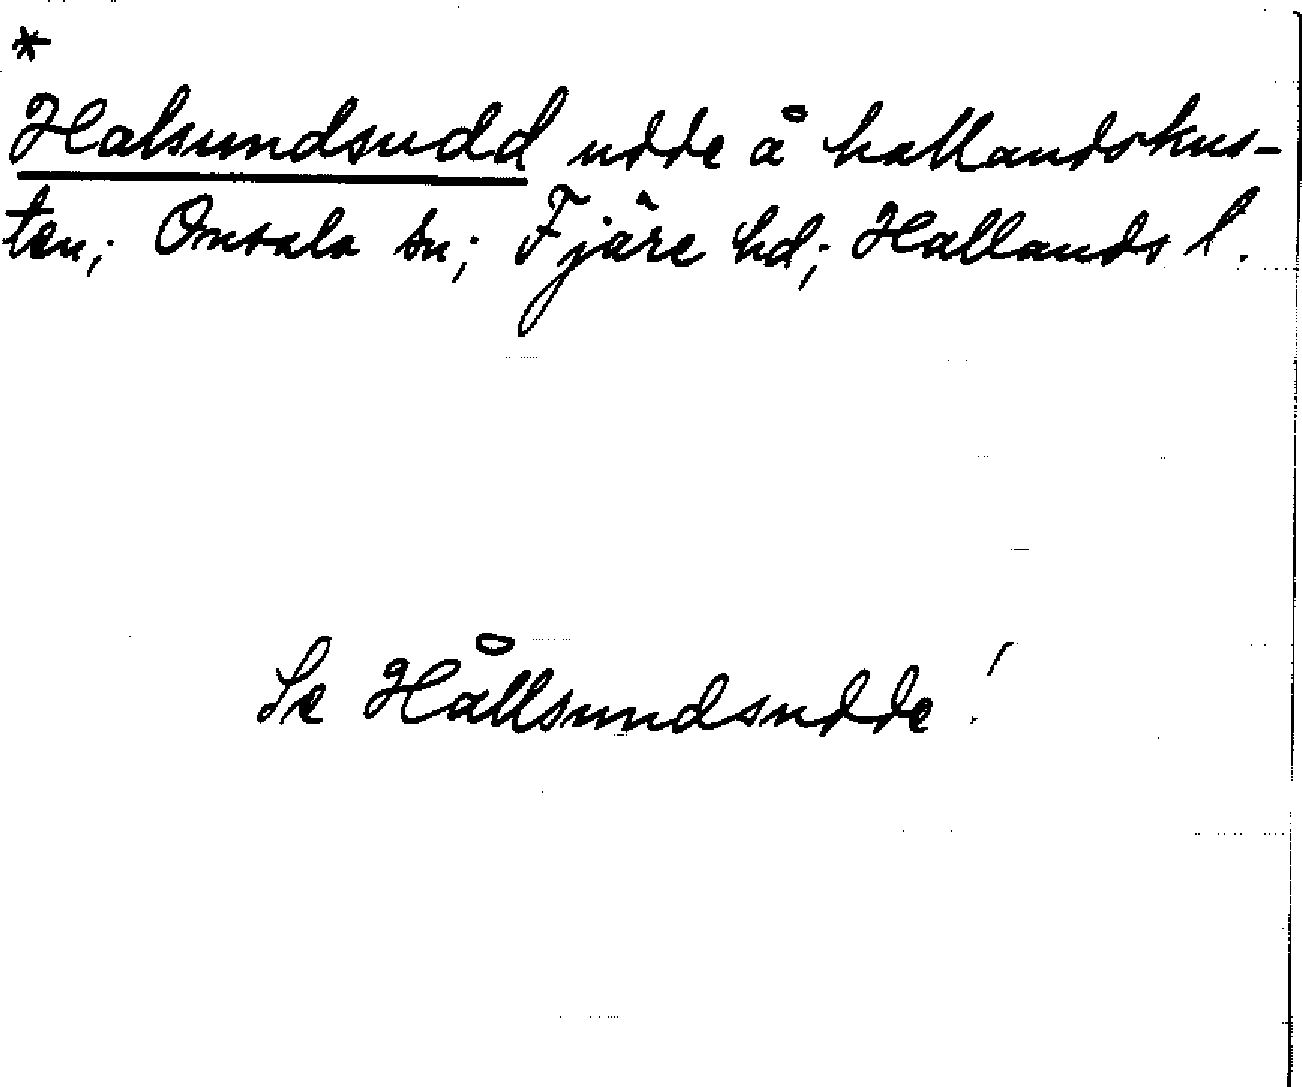 *
Halsundsudd udde å hallandskus-
ten; Onsala sn; Fjäre hd; Hallands l.
Se Hållsundsudde!